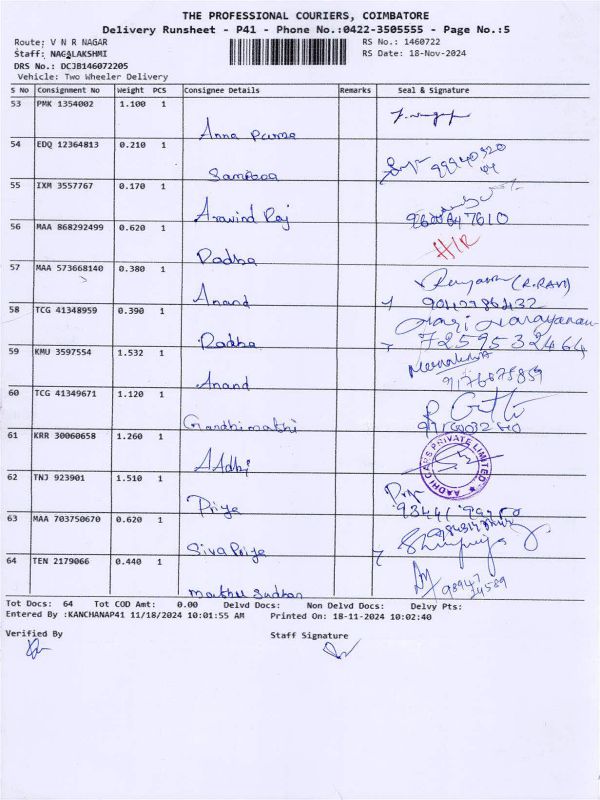 THE PROFESSIONAL COURIERS, COIMBATORE
Delivery Runsheet - P41 - Phone No.:0422-3505555 - Page No.:5
Route: V N R NAGAR RS No.: 1460722
Staff: NAGALAKSHMI RS Date: 18-Nov-2024
DRS No.: DCJB146072205
Vehicle: Two Wheeler Delivery
S No Consignment No Weight PCS Consignee Details Remarks Seal & Signature
53 PMK 1354002 1.100 1
Anna Purna
54 EDQ 12364813 0.210 1
55 IXM 3557767 0.170 1
Aravind Raj 9600647610
56 MAA 868292499 0.620 1 H/R
Radha
57 MAA 573668140 0.380 1 (R.RAVI)
Anand
58 TCG 41348959 0.390 1 Hari Narayanan
Radha 7259532464
59 KMU 3597554 1.532 1 Meenakshi
Anand 9176075859
60 TCG 41349671 1.120 1
Gandhimathi
61 KRR 30060658 1.260 1 AADHI CARS PRIVATE LIMITED
AAdhi
62 TNJ 923901 1.510 1 Priya
Priya
63 MAA 703750670 0.620 1
Siva Priya
64 TEN 2179066 0.440 1
Madhu Sudhan
Tot Docs: 64 Tot COD Amt: 0.00 Delvd Docs: Non Delvd Docs: Delvy Pts:
Entered By :KANCHANAP41 11/18/2024 10:01:55 AM Printed On: 18-11-2024 10:02:40
Verified By Staff Signature